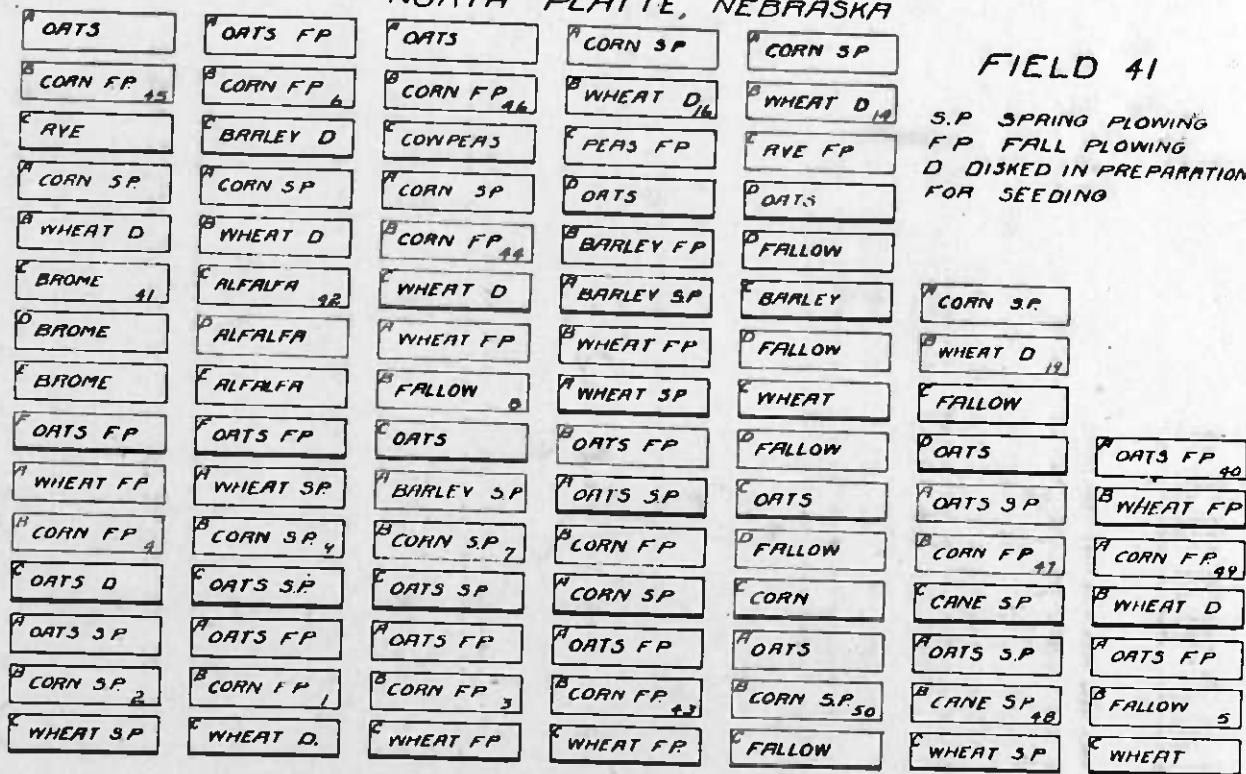 NORTH PLATTE, NEBRASKA
FIELD 41
S.P SPRING PLOWING
F P FALL PLOWING
D DISKED IN PREPARATION
FOR SEEDING
A OATS
B CORN F.P. 45
C RYE
A CORN S.P.
B WHEAT D
C BROME 41
D BROME
E BROME
F OATS FP
A WHEAT FP
B CORN FP 9
C OATS D
A OATS SP
B CORN S.P. 2
C WHEAT S.P
A OATS FP
B CORN FP 6
C BARLEY D
A CORN SP
B WHEAT D
C ALFALFA 42
D ALFALFA
E ALFALFA
F OATS FP
A WHEAT SP.
B CORN SP. 4
C OATS S.P.
A OATS FP
B CORN FP 1
C WHEAT D.
A OATS
B CORN FP 46
C COWPEAS
A CORN SP
B CORN FP 44
C WHEAT D
A WHEAT FP
B FALLOW 8
C OATS
A BARLEY S.P
B CORN S.P. 7
C OATS SP
A OATS FP
B CORN FP 3
C WHEAT FP
A CORN SP
B WHEAT D 16
C PEAS FP
D OATS
B BARLEY FP
A BARLEY S.P
B WHEAT FP
A WHEAT SP
B OATS FP
A OATS SP
B CORN FP
A CORN SP
A OATS FP
B CORN FP. 43
C WHEAT FP.
A CORN SP
B WHEAT D 14
C RYE FP
D OATS
D FALLOW
C BARLEY
D FALLOW
C WHEAT
D FALLOW
C OATS
D FALLOW
C CORN
A OATS
B CORN S.P. 50
C FALLOW
A CORN S.P.
B WHEAT D 19
C FALLOW
D OATS
A OATS S P
B CORN FP 47
C CANE SP
A OATS S.P
B CANE SP 48
C WHEAT SP
A OATS FP 40
B WHEAT FP
A CORN FP. 49
B WHEAT D
A OATS F.P
B FALLOW 5
C WHEAT